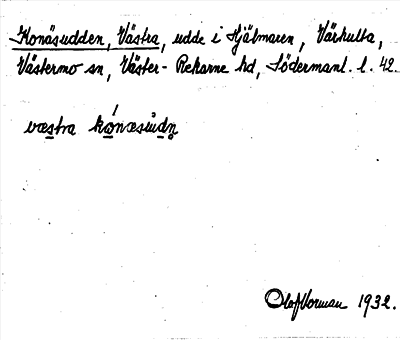 Konäsudden, Västra, udde i Hjälmaren, Värhulta,
Västermo sn, Väster-Rekarne hd, Södermanl. l. 42.
væstra kónæsùdn̥
Olof Vorman 1932.